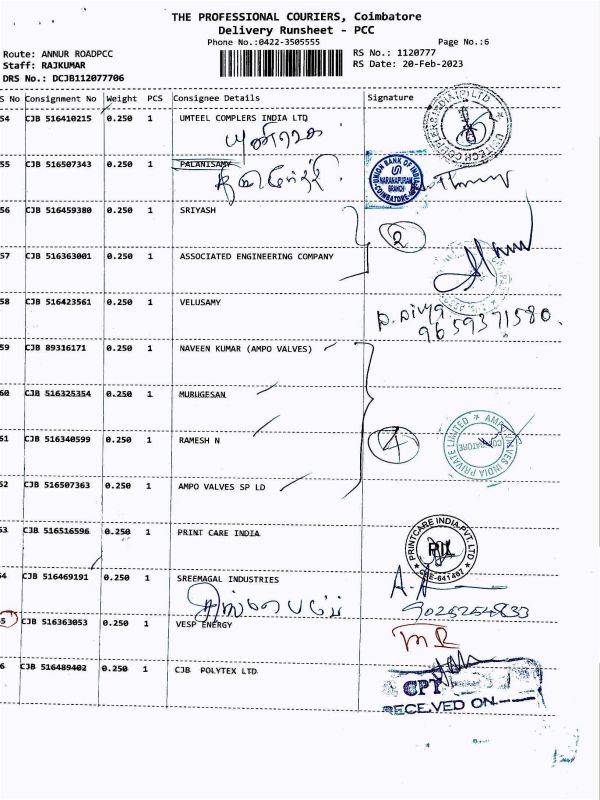 THE PROFESSIONAL COURIERS, Coimbatore
Delivery Runsheet - PCC
Phone No.:0422-3505555 Page No.:6
Route: ANNUR ROADPCC RS No.: 1120777
Staff: RAJKUMAR RS Date: 20-Feb-2023
DRS No.: DCJB112077706
S No Consignment No Weight PCS Consignee Details Signature
54 CJB 516410215 0.250 1 UMTEEL COMPLERS INDIA LTD
55 CJB 516507343 0.250 1 PALANISAMY
UNION BANK OF INDIA
NARANAPURAM
BRANCH
COIMBATORE
56 CJB 516459380 0.250 1 SRIYASH
2
57 CJB 516363001 0.250 1 ASSOCIATED ENGINEERING COMPANY
58 CJB 516423561 0.250 1 VELUSAMY
P. Divya
9659371580.
59 CJB 89316171 0.250 1 NAVEEN KUMAR (AMPO VALVES)
60 CJB 516325354 0.250 1 MURUGESAN
61 CJB 516340599 0.250 1 RAMESH N
4
AMPO VALVES INDIA PRIVATE LIMITED
COIMBATORE
62 CJB 516507363 0.250 1 AMPO VALVES SP LD
63 CJB 516516596 0.250 1 PRINT CARE INDIA
PRINTCARE INDIA PVT. LTD
PIL
CBE-641407
64 CJB 516469191 0.250 1 SREEMAGAL INDUSTRIES
65 CJB 516363053 0.250 1 VESP ENERGY
66 CJB 516489402 0.250 1 CJB POLYTEX LTD
CPT
RECEIVED ON